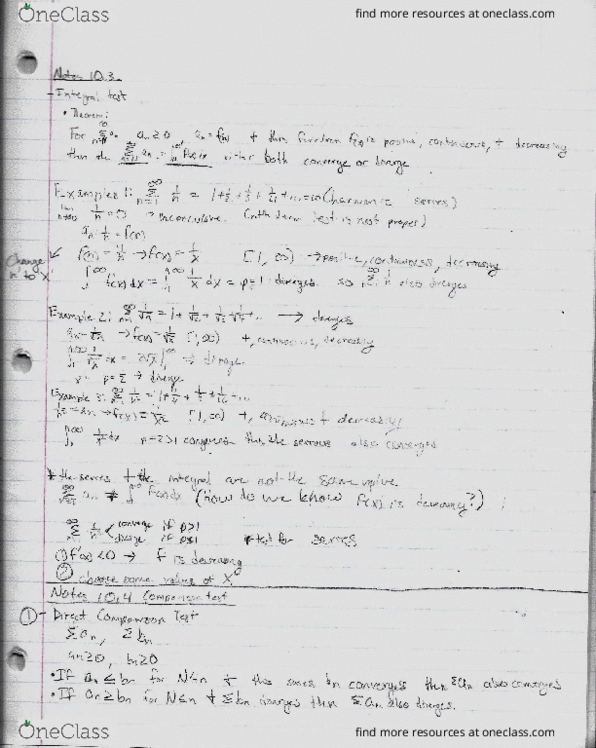 OneClass
find more resources at oneclass.com
Notes 10.3
- Integral test
• Theorem:
For ∑ an an ≥ 0 an = f(n) + this function f(x) is positive, continuous, + decreasing
then the ∑ an = ∫ f(x)dx either both converge or diverge
Examples 1: ∑ 1/n = 1+1/2+1/3+1/4+...=∞ (harmonic series)
lim 1/n = 0 → inconclusive. (nth term test is not proper)
an = 1/n = f(n)
Change "n" to "x"
f(n) = 1/n → f(x) = 1/x [1, ∞) → positive, continuous, decreasing
∫ f(x) dx = ∫ 1/x dx = p=1 diverges. so ∑ 1/n also diverges
Example 2: ∑ 1/√n = 1+1/√2+1/√3+1/√4+... → diverges
an = 1/√n → f(x) = 1/√x [1, ∞) +, continuous, decreasing
∫ 1/√x dx = 2√x → diverge.
→ diverge
Example 3:
→ f(x) = [1, ∞) +, continuous + decreasing
p=2>1 converges thus the series also converges
* the series + the integral are not the same value
∑ an ≠ ∫ f(x)dx (How do we know f(x) is decreasing?)
∑ converge if p>1
diverge if p≤1 *test for series
① f'(x) < 0 → f is decreasing
② choose some value of x
Notes 10.4 Comparison test
① - Direct Comparison Test
∑an, ∑bn
an≥0, bn≥0
• If an ≤ bn for N≤n + the series bn converges then ∑an also converges
• If an ≥ bn for N≤n + ∑bn diverges then ∑an also diverges.
OneClass
find more resources at oneclass.com